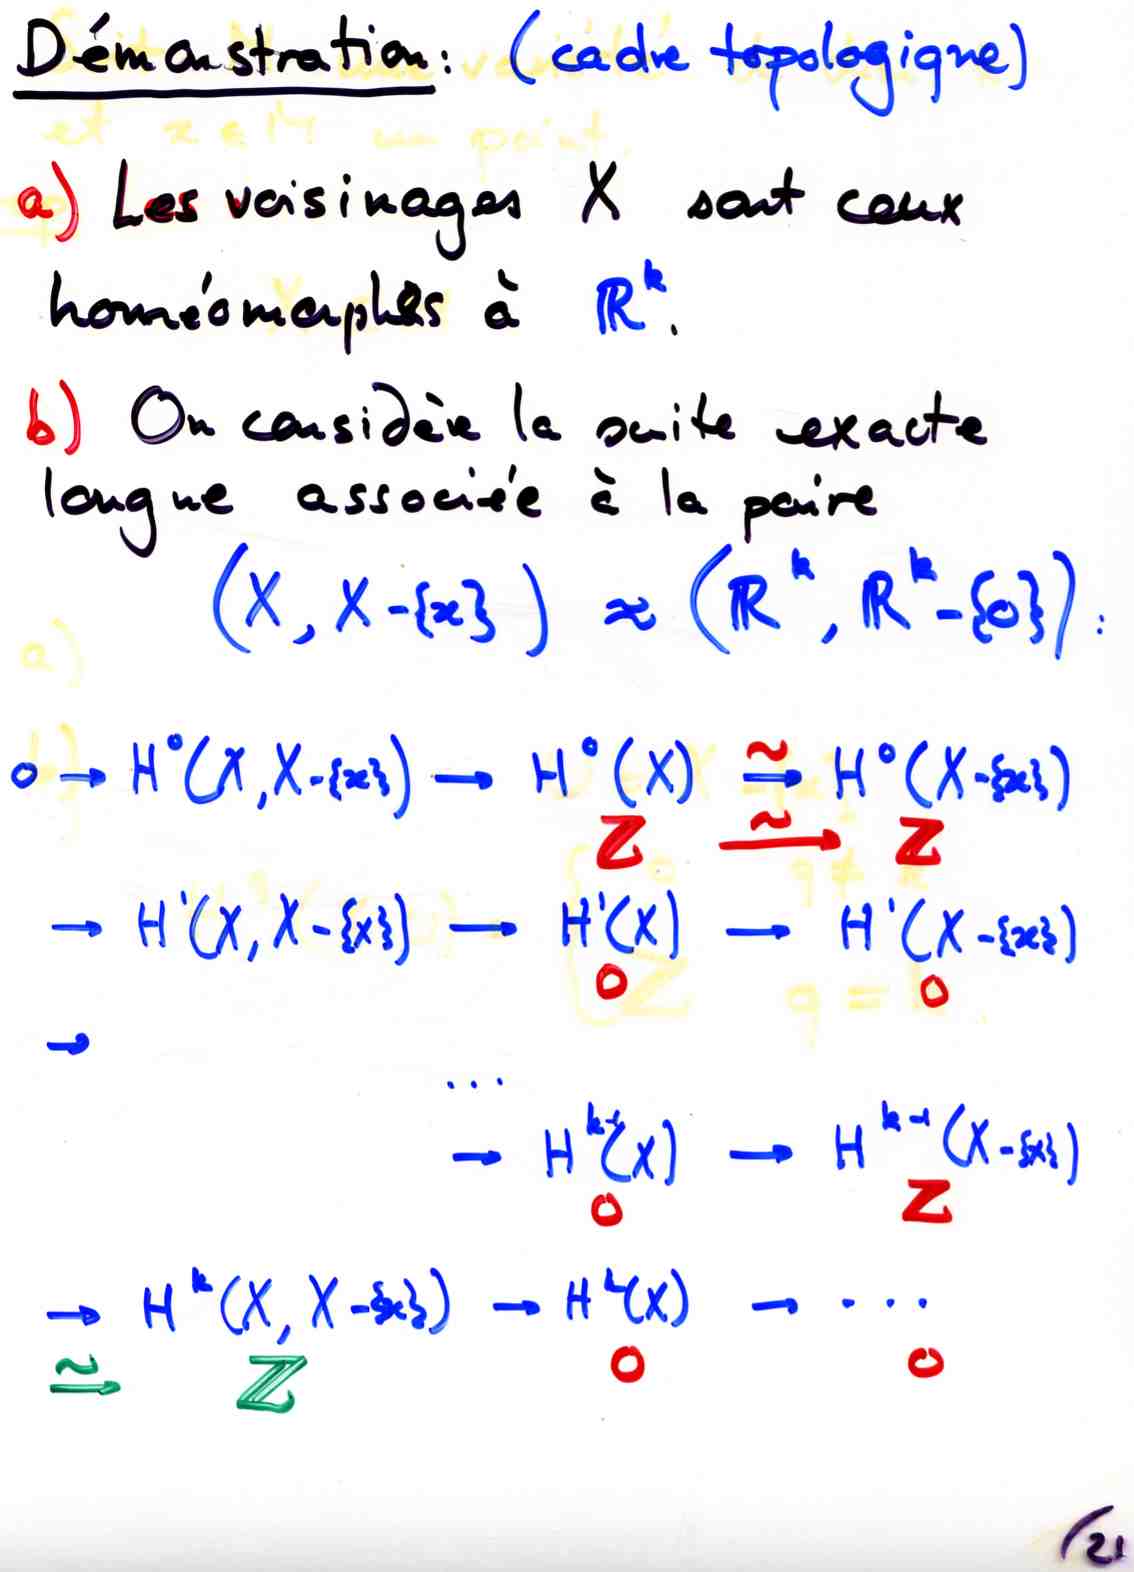 Démonstration: (cadre topologique)
a) Les voisinages X sont ceux
homéomorphes à ℝᵏ.
b) On considère la suite exacte
longue associée à la paire
(X, X-{x}) ≈ (ℝᵏ, ℝᵏ-{0}):
0 → H⁰(X, X-{x}) → H⁰(X) ⥲ H⁰(X-{x})
ℤ ⥲ ℤ
→ H¹(X, X-{x}) → H¹(X) → H¹(X-{x})
0 0
→
...
→ Hᵏ⁻¹(X) → Hᵏ⁻¹(X-{x})
0 ℤ
→ Hᵏ(X, X-{x}) → Hᵏ(X) → ...
⥲ ℤ 0 0
21